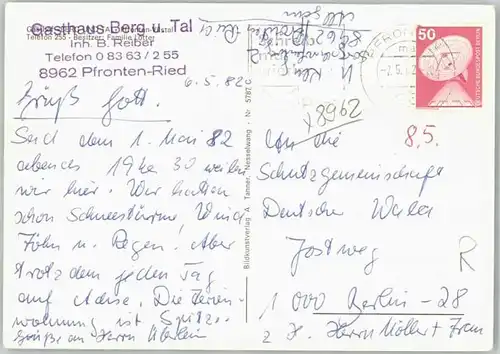 Gasthaus Berg u. Tal
Inh. B. Reiber
Telefon 255 - Besitzer: Familie Lotter
Telefon 0 83 63 / 2 55
8962 Pfronten-Ried
6.5.82
Grüß Gott.
Seid dem 1. Mai 82
abends 19 30 weilen
wir hier. Wir hatten
schon Schneestürme Wind
Föhn u. Regen! Aber
trotz dem jeden Tag
auf Achse. Die Ferien-
wohnung ist Spitze.
Grüße an Herrn
Bildkunstverlag A. Tanner, Nesselwang - Nr. 5787
50
DEUTSCHE BUNDESPOST BERLIN
8962
8.5.
An die
Schutzgemeinschaft
Deutscher Wald
Jostweg
1000 Berlin - 28
z. H. Herrn Möller + Frau
R